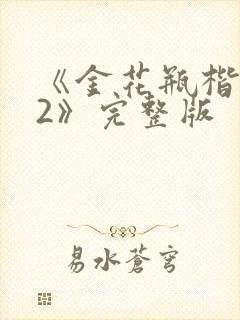 《金花瓶楷
2》完整版
易水苍穹